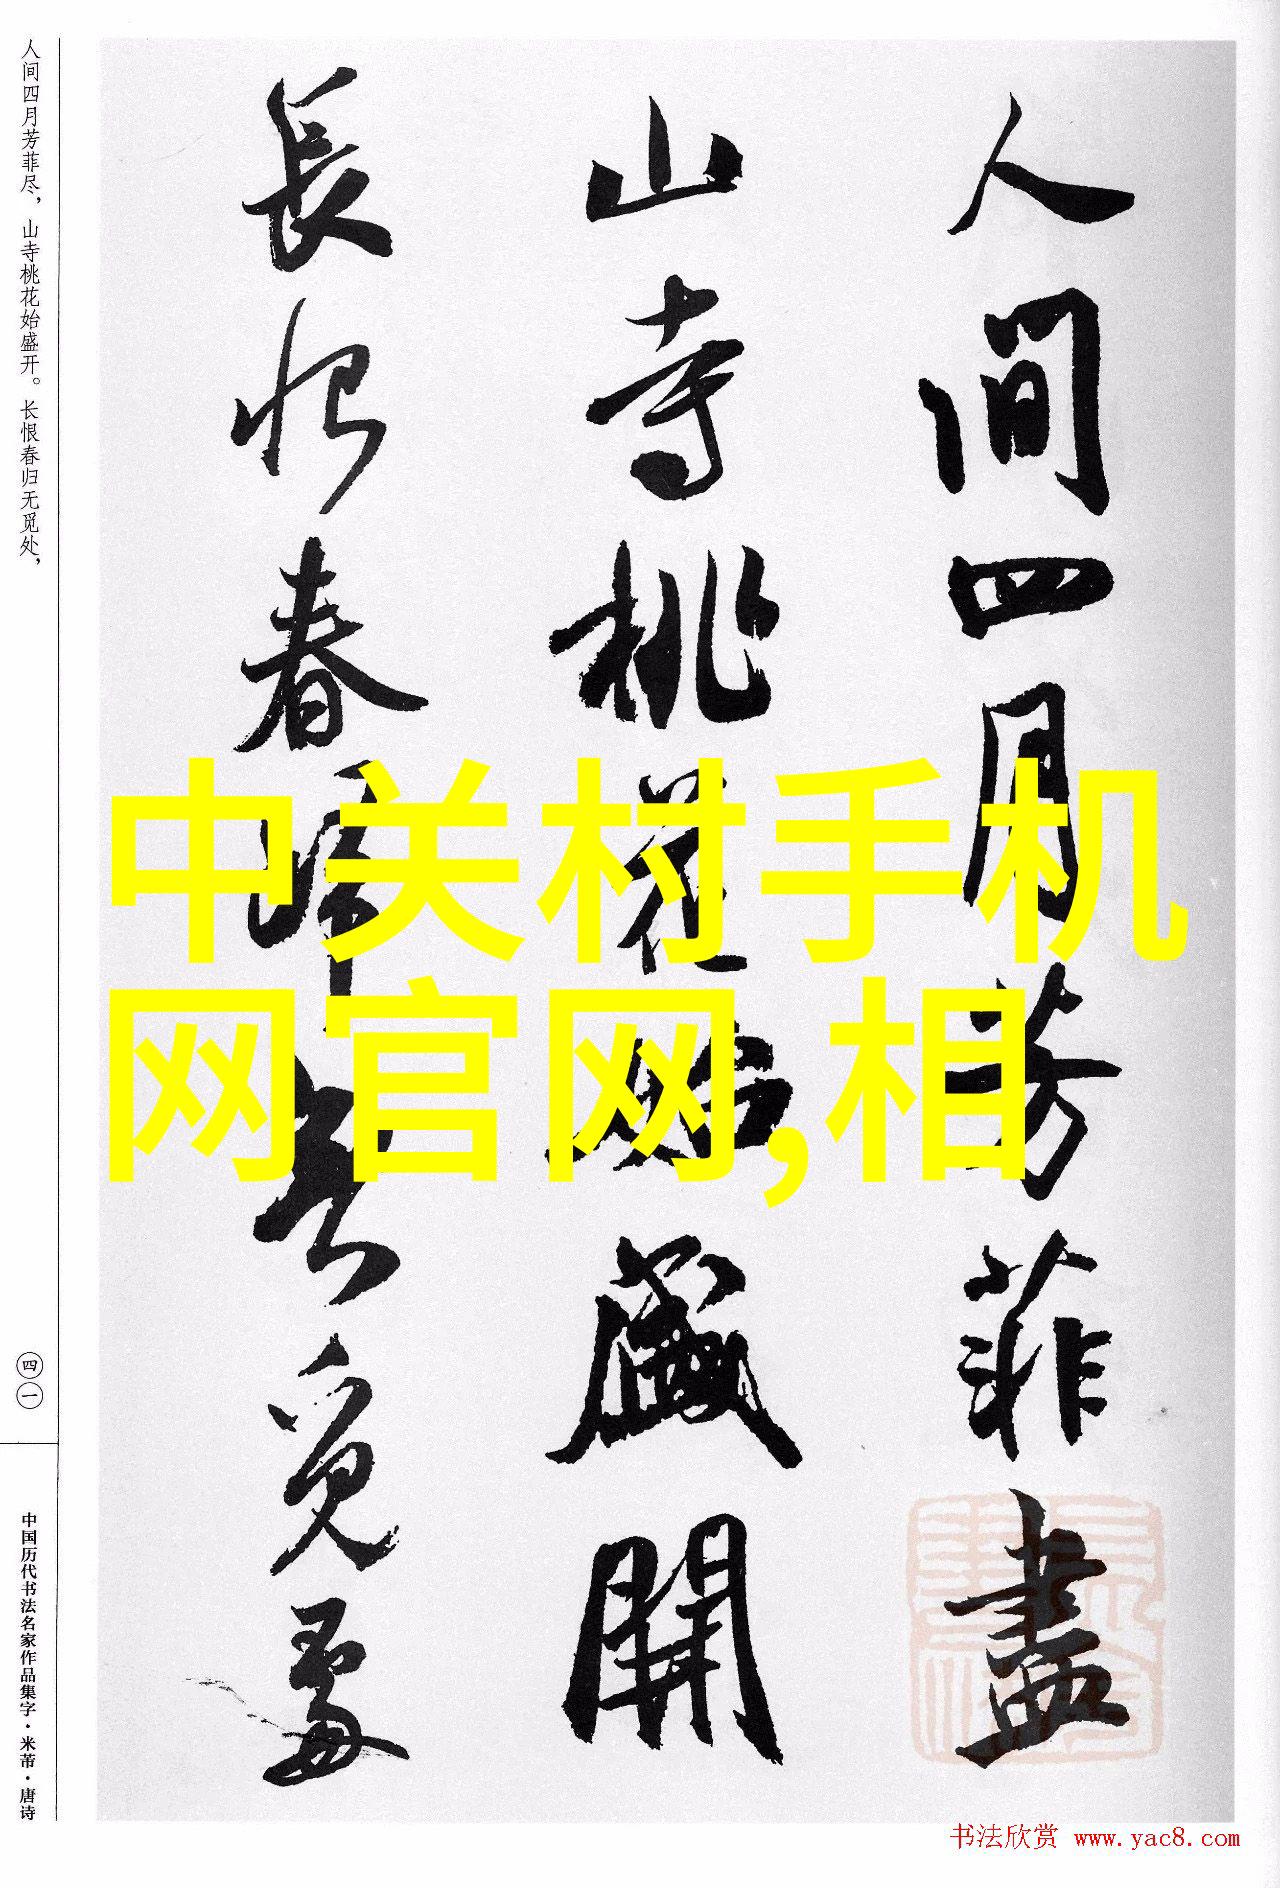 人間四月芳菲盡
山寺桃花始盛開
長恨春歸無覓處
中关村手机
网官网,相
人间四月芳菲尽，山寺桃花始盛开。长恨春归无觅处，
四一
中国历代书法名家作品集字·米芾·唐诗
书法欣赏 www.yac8.com